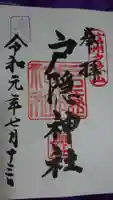 奉拝
戸隠神社
令和元年七月十三日